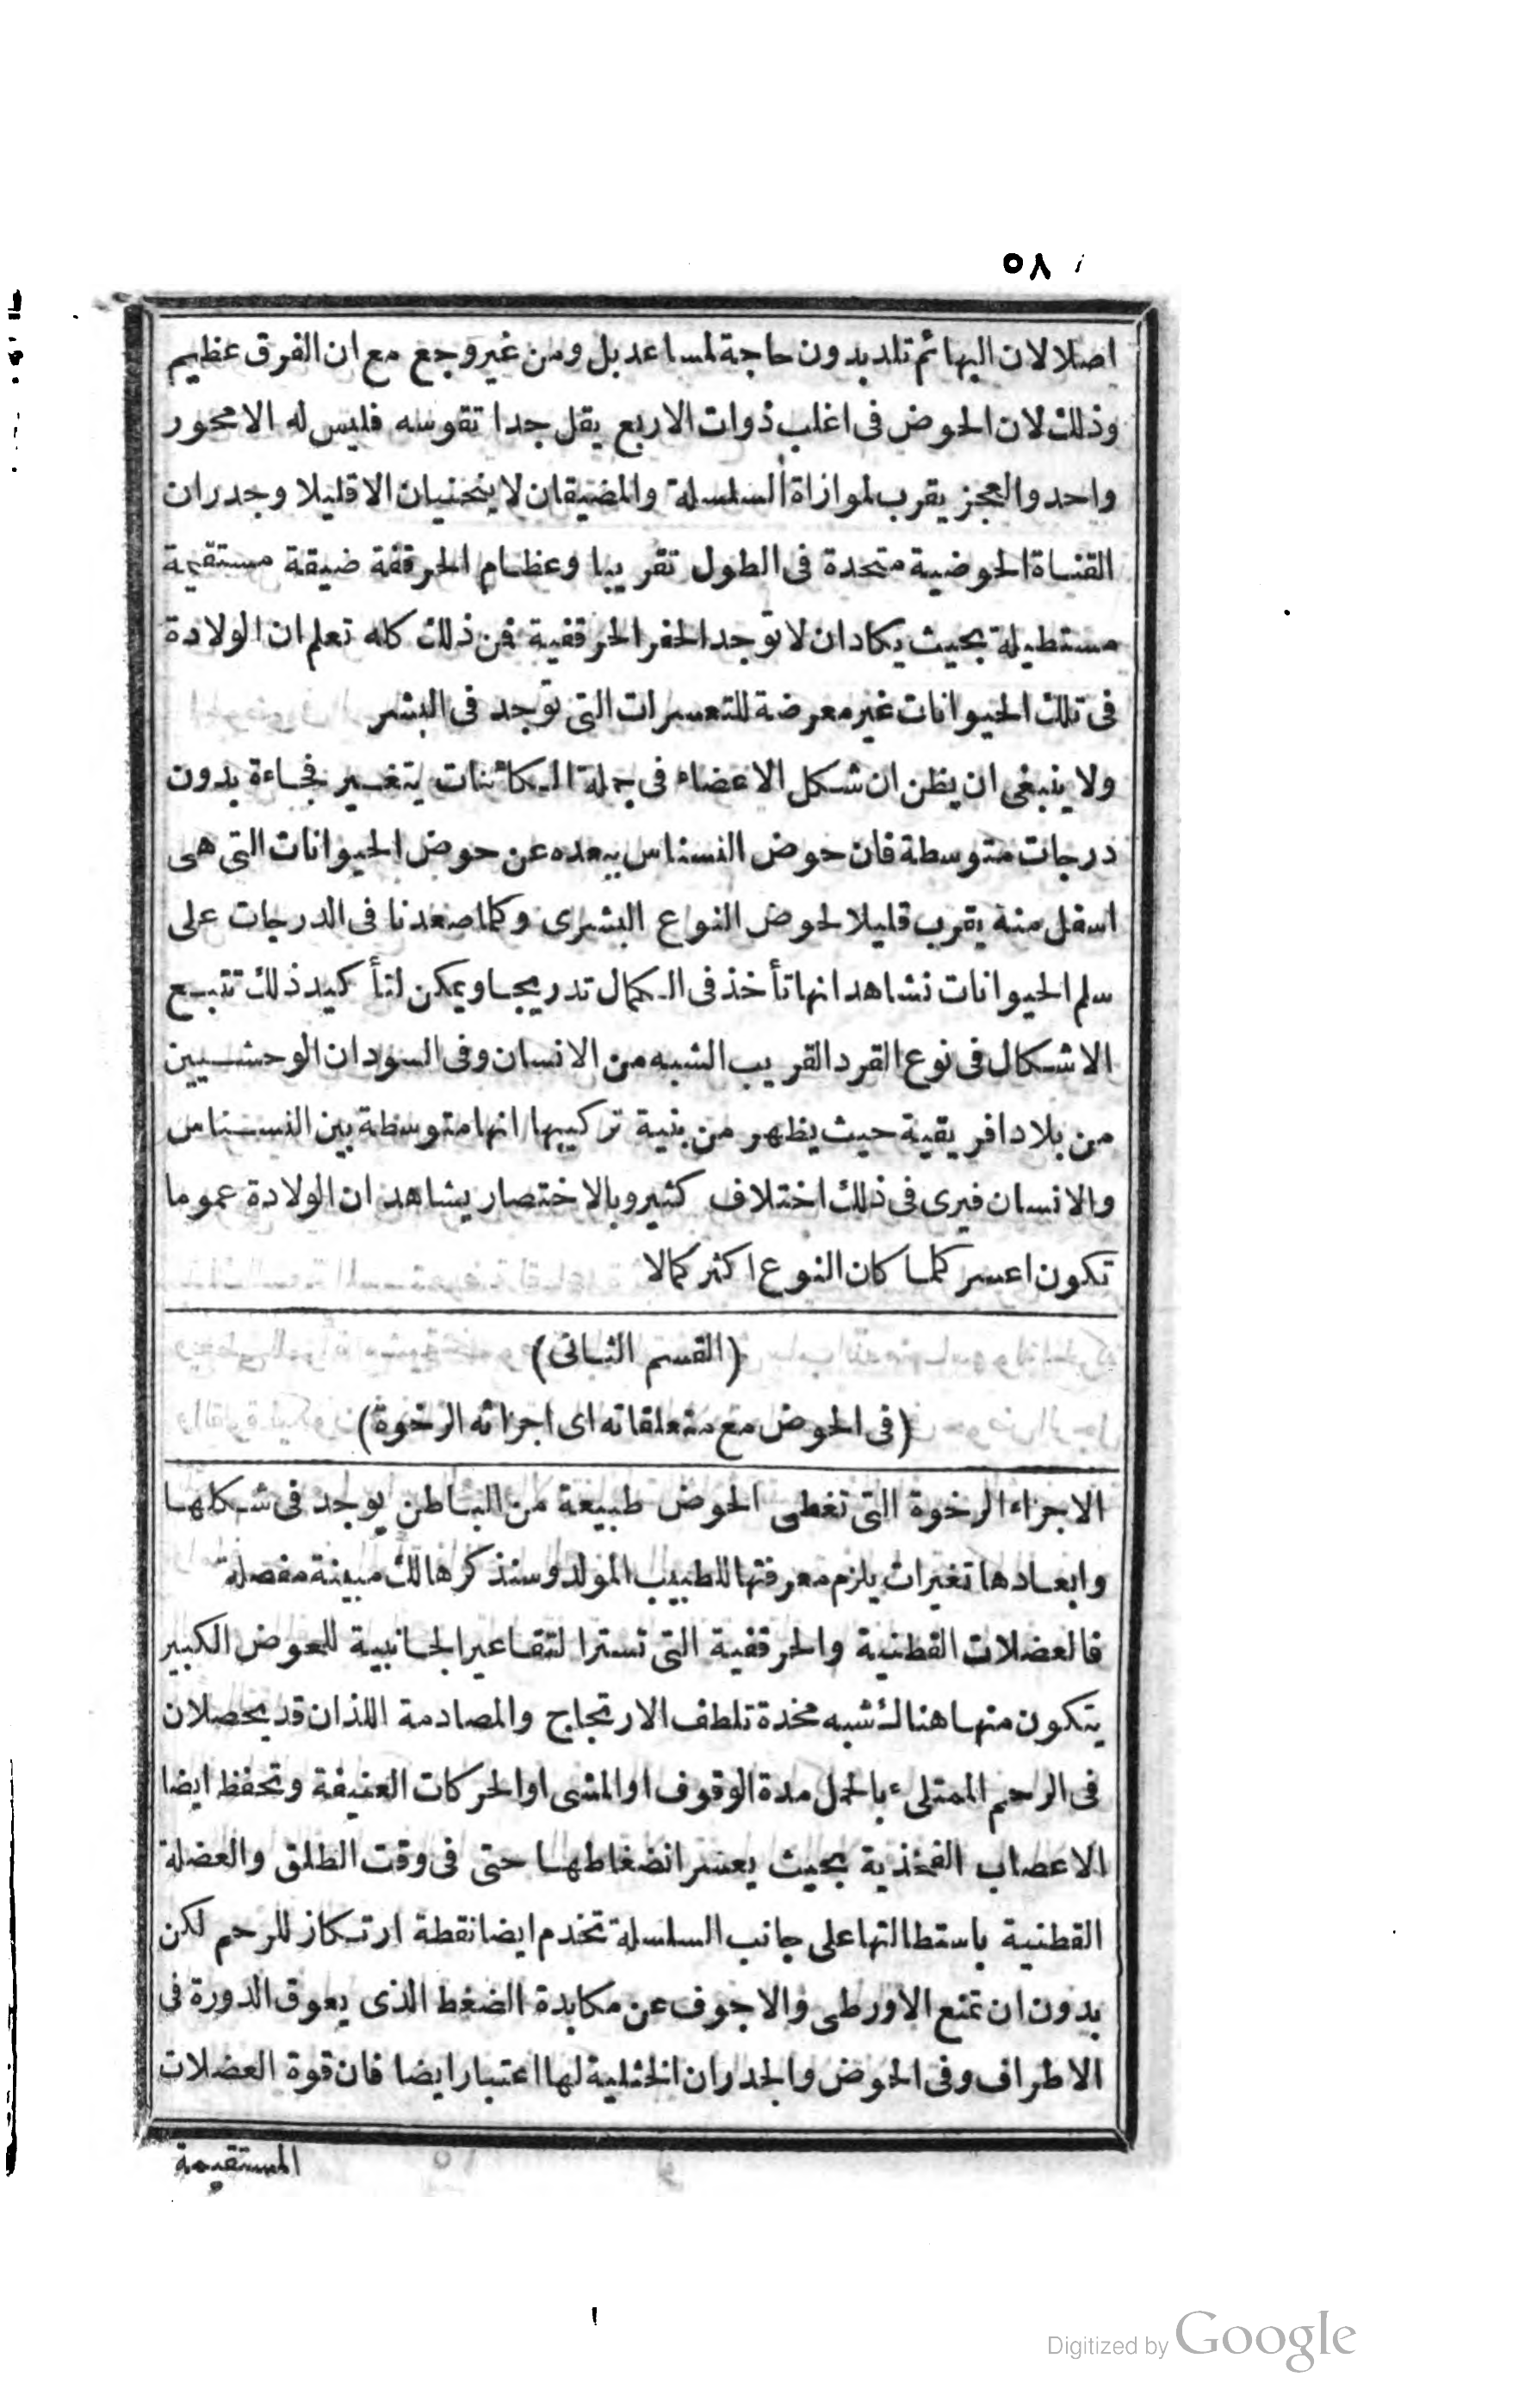 ٥٨
اصلا لان البهائم تلد بدون حاجة لمساعد بل ومن غير وجع مع ان الفرق عظيم
وذلك لان الحوض فى اغلب ذوات الاربع يقل جدا تقوسه فليس له الا محور
واحد والعجز يقرب لموازاة السلسلة والمضيقان لا ينحنيان الا قليلا وجدران
القناة الحوضية متحدة فى الطول تقريبا وعظام الحرقفة ضيقة مستقيمة
مستطيلة بحيث يكاد ان لا توجد الحفر الحرقفية فمن ذلك كله تعلم ان الولادة
فى تلك الحيوانات غير معرضة للتعسرات التى توجد فى البشر
ولا ينبغى ان يظن ان شكل الاعضاء فى جملة الكائنات يتغير فجاءة بدون
درجات متوسطة فان حوض النسناس ببعده عن حوض الحيوانات التى هى
اسفل منه يقرب قليلا لحوض النوع البشرى وكلما صعدنا فى الدرجات على
سلم الحيوانات نشاهد انها تأخذ فى الكمال تدريجا ويمكن لتأكيد ذلك تتبع
الاشكال فى نوع القرد القريب الشبه من الانسان وفى السودان الوحشيين
من بلاد افريقية حيث يظهر من بنية تركيبها انها متوسطة بين النسناس
والانسان فيرى فى ذلك اختلاف كثير وبالاختصار يشاهد ان الولادة عموما
تكون اعسر كلما كان النوع اكثر كمالا
(القسم الثانى)
(فى الحوض مع متعلقاته اى اجزائه الرخوة)
الاجزاء الرخوة التى تغطى الحوض طبيعة من الباطن يوجد فى شكلها
وابعادها تغيرات يلزم معرفتها للطبيب المولد وسنذكرها لك مبينة مفصلة
فالعضلات القطنية والحرقفية التى تستر التقاعير الجانبية للحوض الكبير
يتكون منها هناك شبه مخدة تلطف الارتجاج والمصادمة اللذان قد يحصلان
فى الرحم الممتلىء بالحمل مدة الوقوف او المشى او الحركات العنيفة وتحفظ ايضا
الاعصاب الفخذية بحيث يعسر انضغاطها حتى فى وقت الطلق والعضلة
القطنية باستطالتها على جانب السلسلة تخدم ايضا نقطة ارتكاز للرحم لكن
بدون ان تمنع الاورطى والاجوف عن مكابدة الضغط الذى يعوق الدورة فى
الاطراف وفى الحوض والجدران الخثلية لها اعتبار ايضا فان قوة العضلات
المستقيمة
Digitized by Google